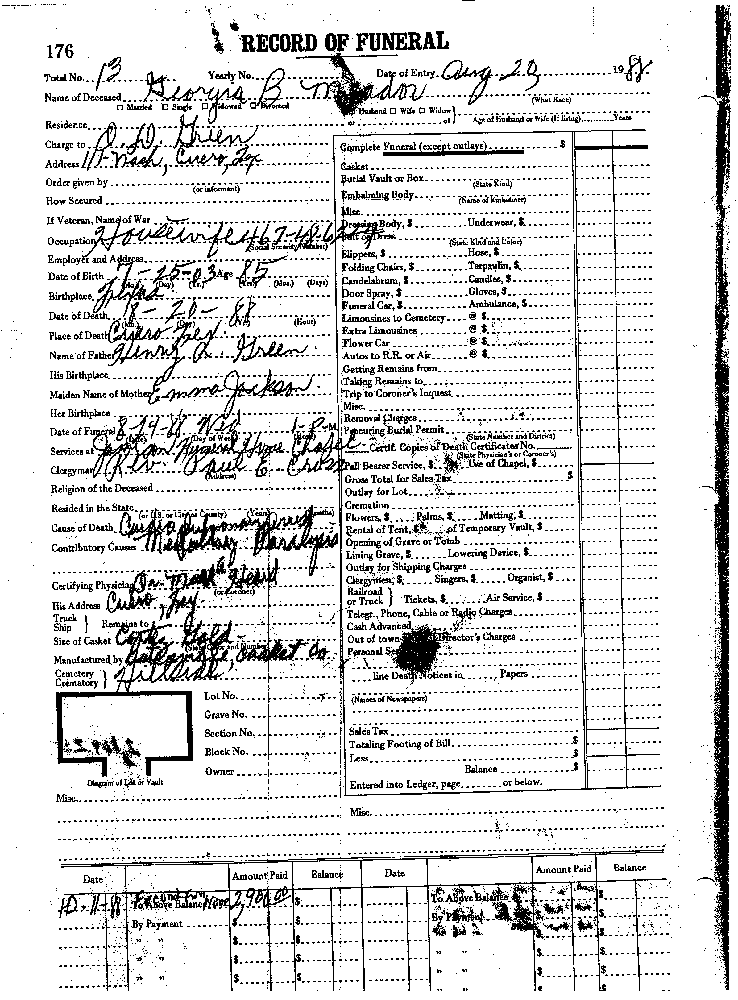 176
RECORD OF FUNERAL
Total No. 13 Yearly No. Date of Entry Aug 20, 1988
Name of Deceased Georgia B. Meador
(What Race)
☐ Married ☐ Single ☐ Widowed ☐ Divorced
Husband ☐ Wife ☐ Widow
or of Age of Husband or Wife (if living) Years
Residence
Charge to O. D. Green
Address Cuero, Tex
Order given by
(or informant)
How Secured
If Veteran, Name of War
Occupation Housewife
(Social Security Number)
Employer and Address
Date of Birth 7-25-03 Age 85
(Mo.) (Day) (Yr.) (Yrs.) (Mos.) (Days)
Birthplace Texas
Date of Death 8-20-88
(Hour)
Place of Death Cuero Tex.
Name of Father Henry A. Green
His Birthplace
Maiden Name of Mother Emma Jackson
Her Birthplace
Date of Funeral Wed
(Day of Week)
Services at Home Chapel
(Address)
Clergyman Rev. Paul E. Cross
Religion of the Deceased
Resided in the State
(or U.S. or County) (Years) (Months)
Cause of Death Cardiopulmonary Arrest
Contributory Causes Paralysis
Certifying Physician Dr. Mark Heard
(or Coroner)
His Address Cuero, Tex
Truck
Ship Remains to
Size of Casket Gold
Manufactured by Casket Co
Cemetery
Crematory Hillside
Lot No.
Grave No.
Section No.
Block No.
Owner
Diagram of Lot or Vault
Misc.
Complete Funeral (except outlays) $
Casket
Burial Vault or Box
(State Kind)
Embalming Body
(Name of Embalmer)
Misc.
Dressing Body, $ Underwear, $
Suit or Dress
(State Kind and Color)
Slippers, $ Hose, $
Folding Chairs, $ Tarpaulin, $
Candelabrum, $ Candles, $
Door Spray, $ Gloves, $
Funeral Car, $ Ambulance, $
Limousines to Cemetery @ $
Extra Limousines @ $
Flower Car @ $
Autos to R.R. or Air @ $
Getting Remains from
Taking Remains to
Trip to Coroner's Inquest
Misc.
Removal Charges
Procuring Burial Permit
(State Number and District)
Certif. Copies of Death Certificates No.
(State Physician's or Coroner's)
Pall Bearer Service, $ Use of Chapel, $
Gross Total for Sales Tax $
Outlay for Lot
Cremation
Flowers, $ Palms, $ Matting, $
Rental of Tent, $ of Temporary Vault, $
Opening of Grave or Tomb
Lining Grave, $ Lowering Device, $
Outlay for Shipping Charges
Clergymen, $ Singers, $ Organist, $
Railroad
or Truck Tickets, $ Air Service, $
Telegr., Phone, Cable or Radio Charges
Cash Advanced
Out of town Director's Charges
Personal
line Death Notices in Papers
(Names of Newspapers)
Sales Tax
Totaling Footing of Bill $
Less $
Balance $
Entered into Ledger, page or below.
Misc.
Date Amount Paid Balance Date Amount Paid Balance
To Above Balance 2,900.00 $ To Above Balance
By Payment $ $ By Payment
" " $ $ " " $ $
" " $ $ " " $ $
" " $ $ " " $ $